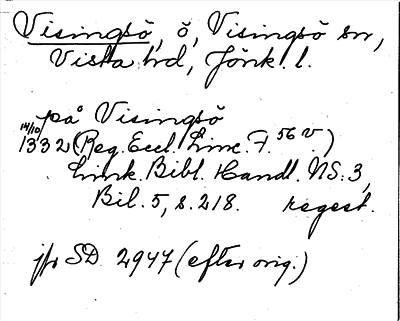 Visingsö, ö, Visingsö sn,
Vista hd, Jönk. l.
på Visingsö
14/10 1332 (Reg. Eccl. Linc. F. 56 v.)
Link. Bibl. Handl. NS: 3,
Bil. 5, s. 218. regest.
jfr SD 2947 (efter orig.)